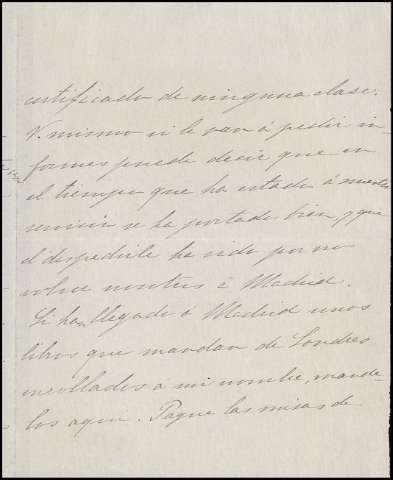 certificado de ninguna clase.
V. mismo si le van á pedir in-
formes puede decir que en
el tiempo que ha estado á nuestro
servicio se ha portado bien y que
el despedirle ha sido por no
volver nosotros á Madrid.
Si han llegado á Madrid unos
libros que mandan de Londres
enrollados á mi nombre, mande-
los aquí. Pague las misas de